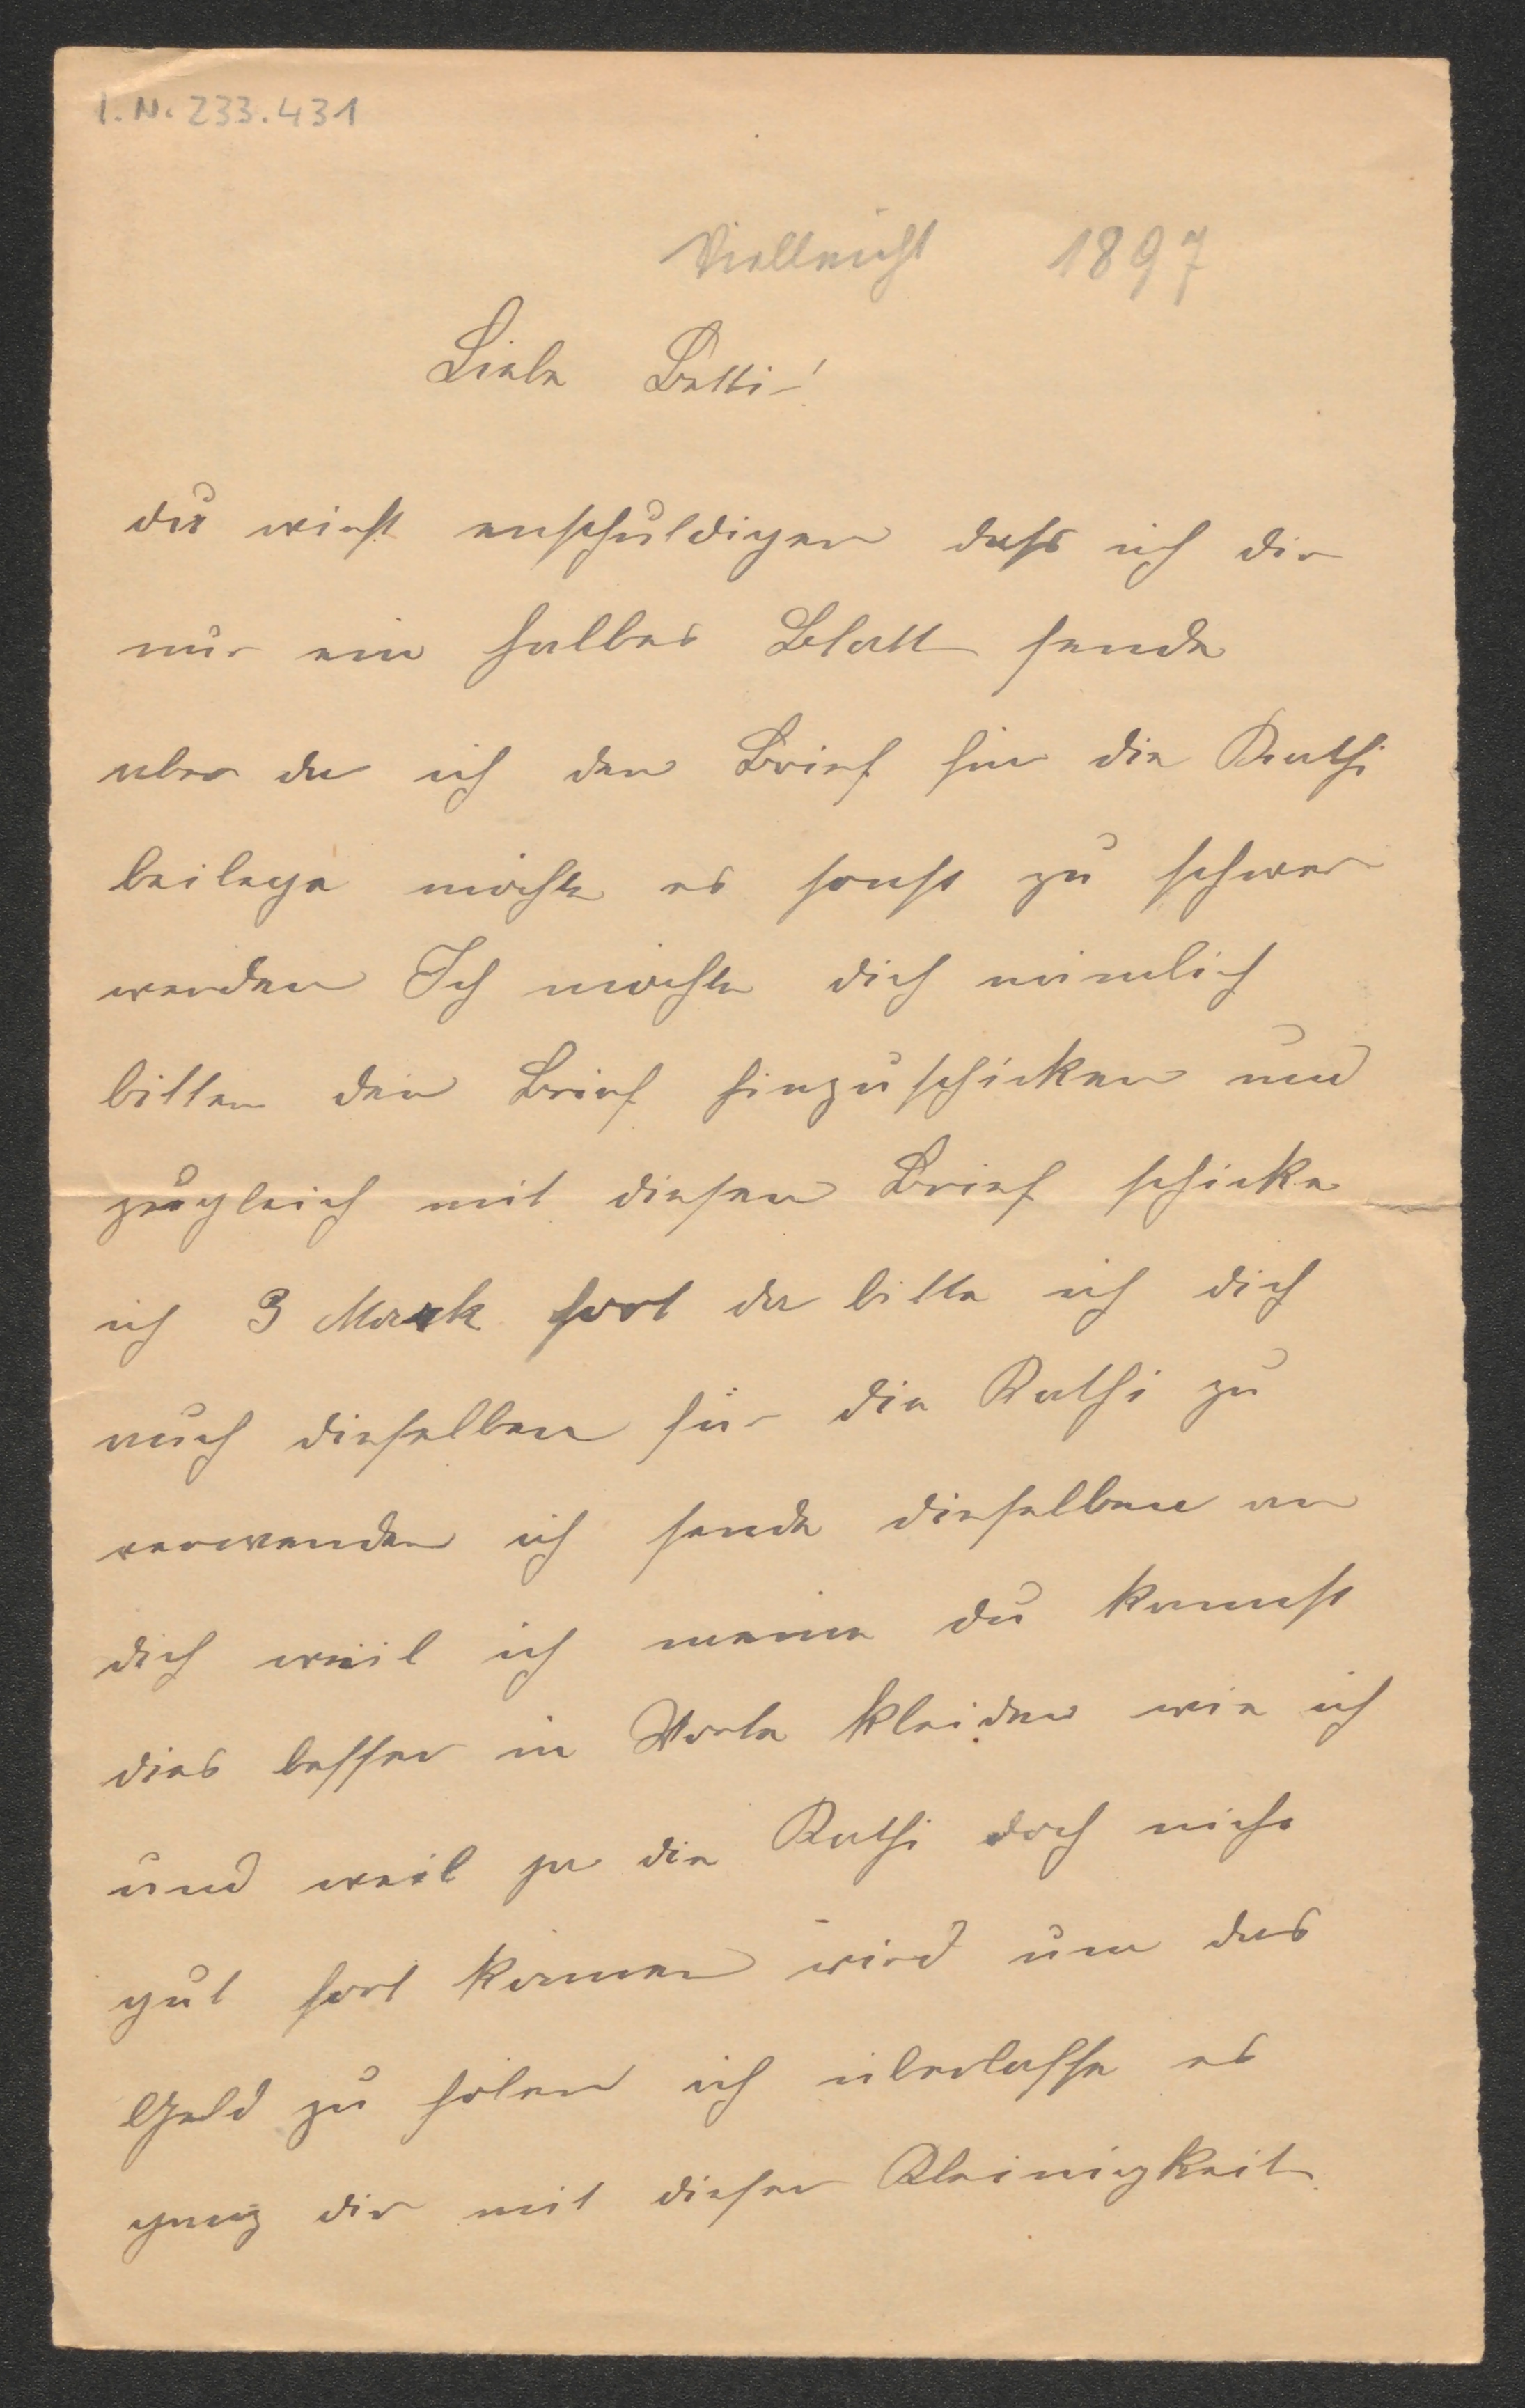 I.N. 233.431
Vielleicht 1897
Liebe Betti!
du wirst enschuldigen dass ich dir
nur ein halbes Blatt sende
aber da ich den Brief für die Kathi
beilege möchte es sonst zu schwer
werden Ich möchte dich nämlich
bitten den Brief hinzuschicken und
zugleich mit diesen Brief schicke
ich 3 Mark fort da bitte ich dich
auch dieselben für die Kathi zu
verwenden ich sende dieselben an
dich weil ich meine du kannst
dies besser in Worte kleiden wie ich
und weil ja die Kathi doch nicht
gut fort können wird um das
Geld zu holen ich überlasse es
ganz dir mit dieser Kleinigkeit